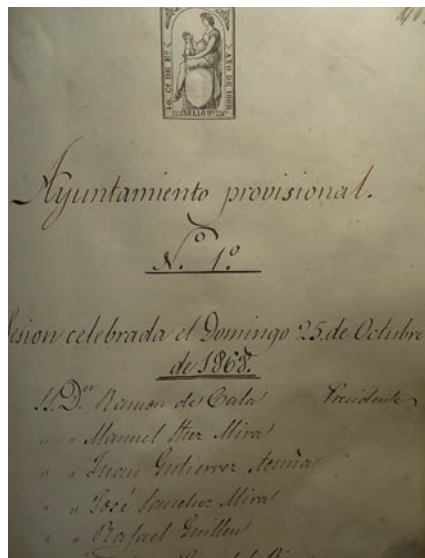 AÑO DE 1868
Ayuntamiento provisional.
N.º 1º
Sesion celebrada el Domingo 25 de Octubre
de 1868.
S.S. Dn Ramon de Cala Presidente
" " Manuel Mira
" " Juan Gutierrez Acuña
" " José Sanchez Mira
" " Rafael Guillen